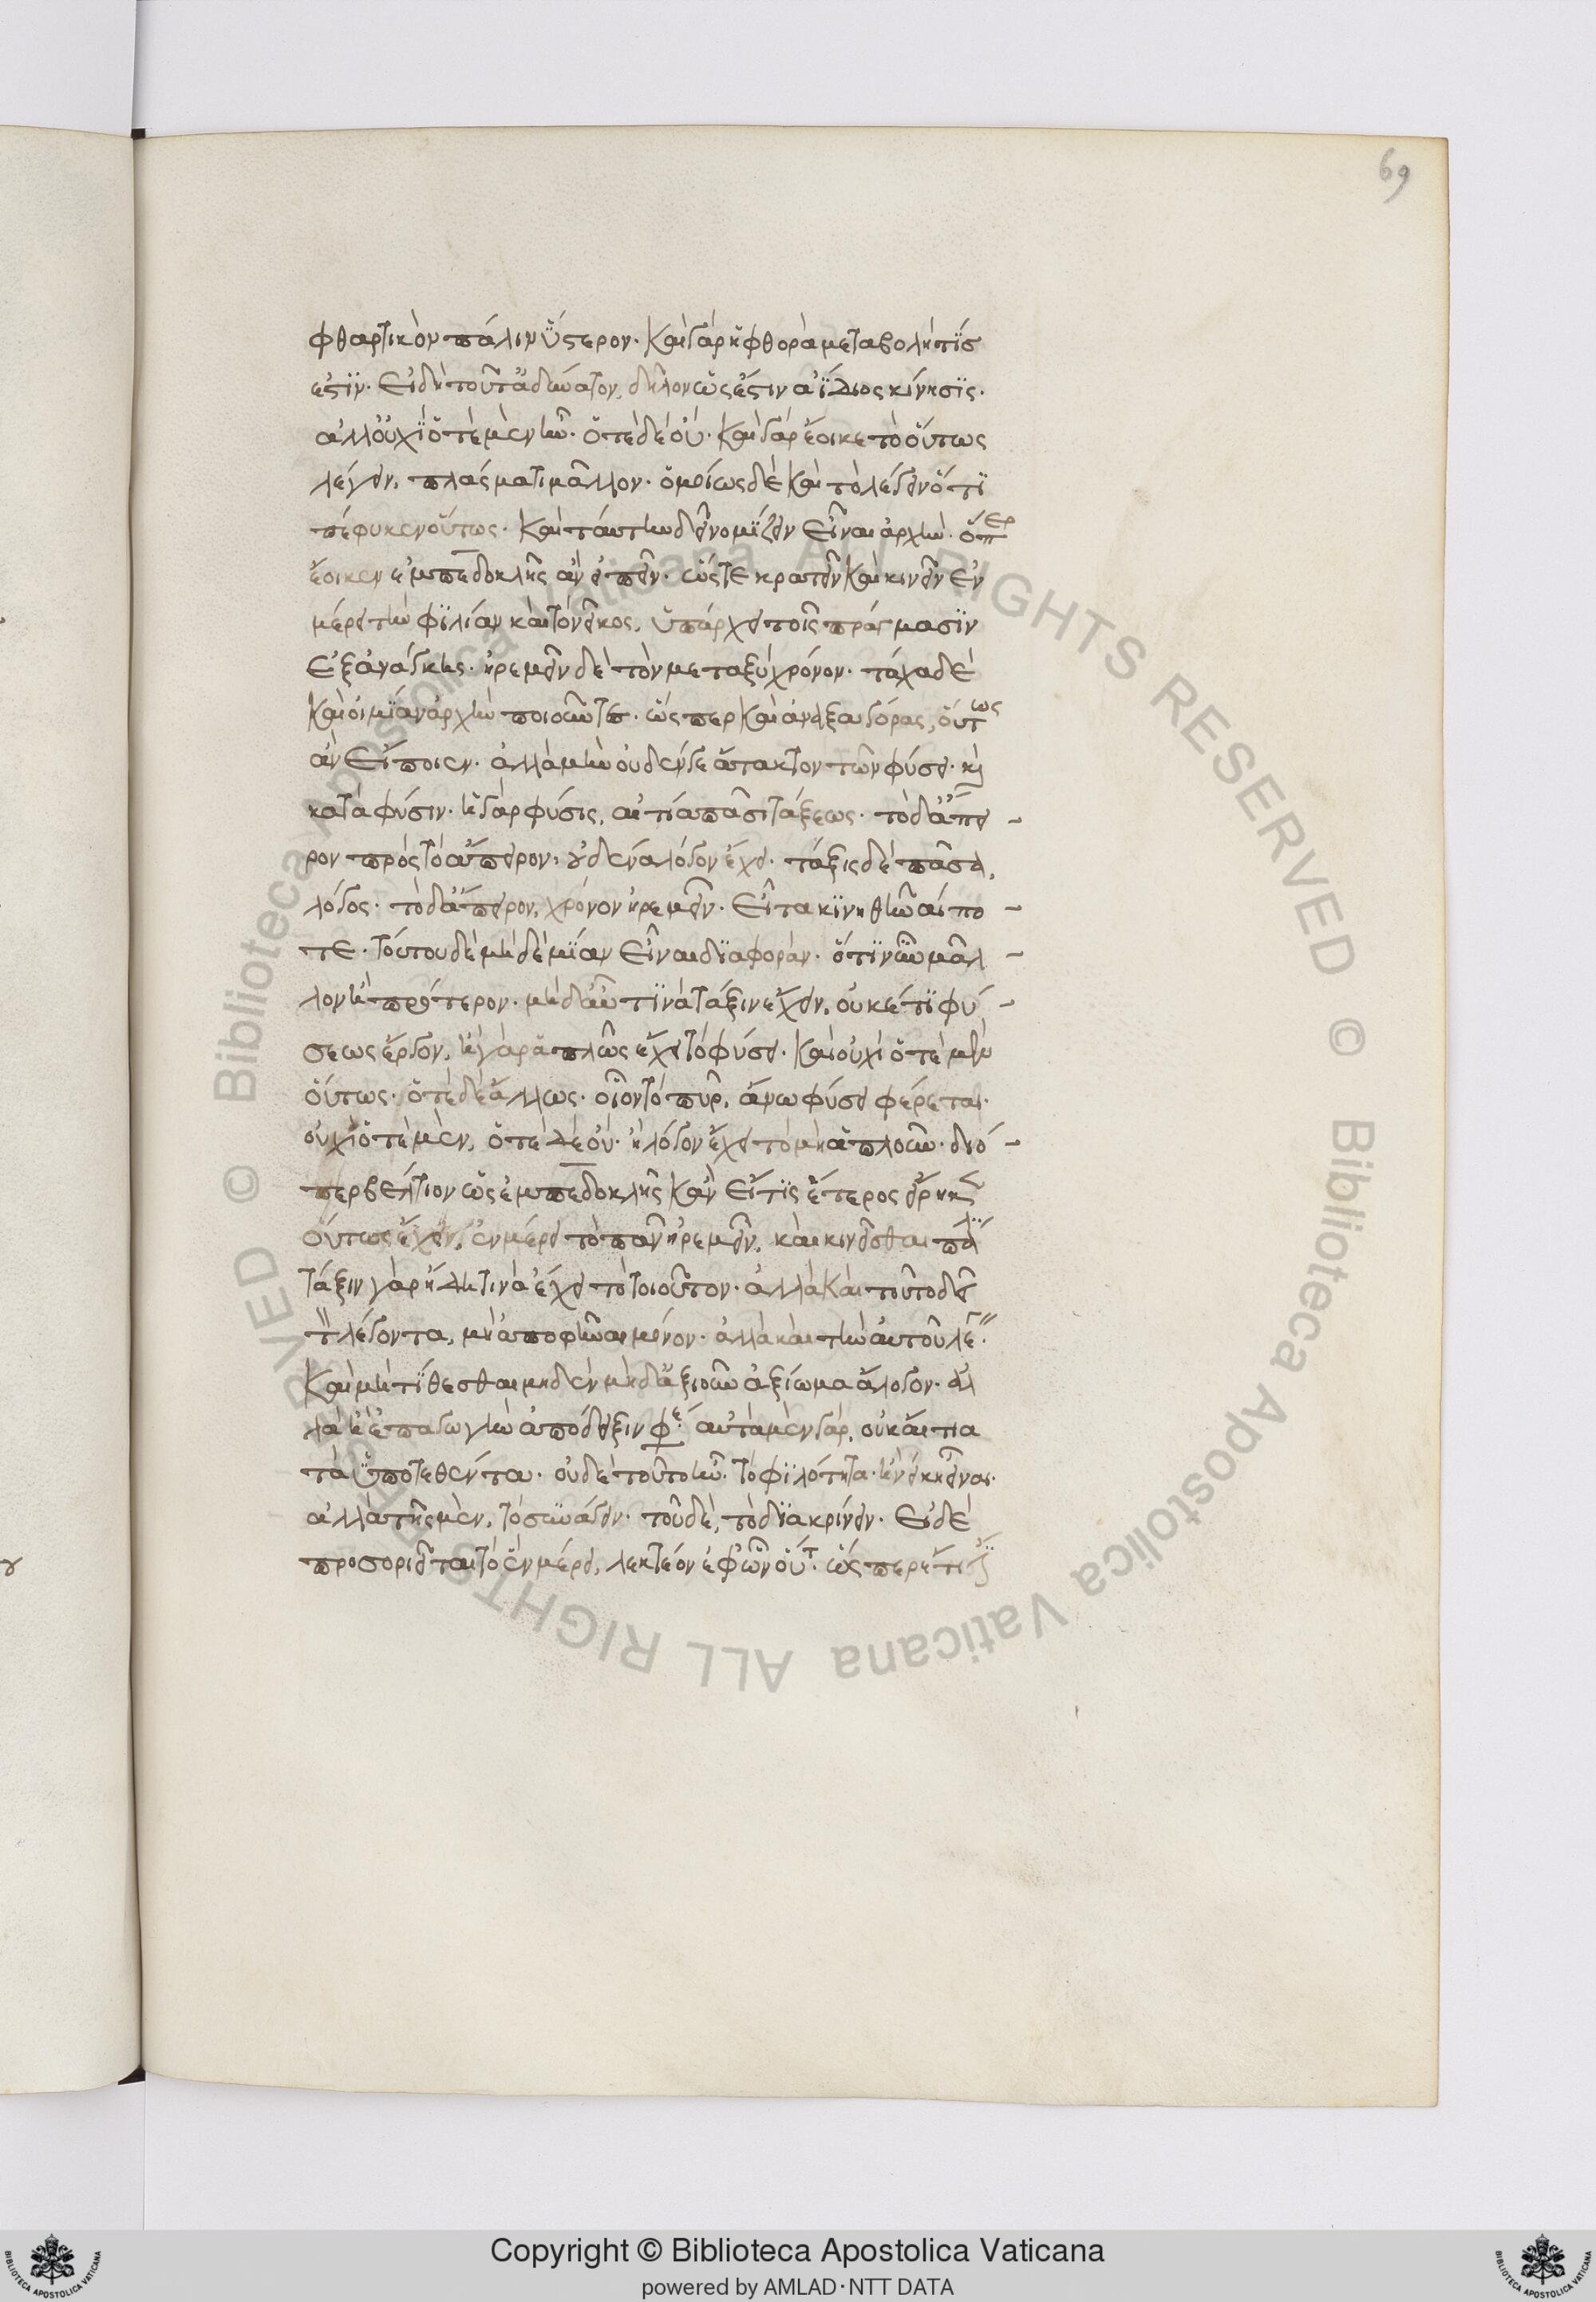 69
φθαρτικὸν πάλιν ὕστερον· καὶ γὰρ ἡ φθορὰ μεταβολή τίς
ἐστιν· εἰ δὴ τοῦτ' ἀδύνατον, δῆλον ὡς ἔστιν ἀΐδιος κίνησις·
ἀλλ' οὐχὶ ὁτὲ μὲν ἦν· ὁτὲ δὲ οὐ· καὶ γὰρ ἔοικε τὸ οὕτως
λέγειν, πλάσματι μᾶλλον· ὁμοίως δὲ καὶ τὸ λέγειν ὅτι
πέφυκεν οὕτως· καὶ ταύτην δεῖ νομίζειν εἶναι ἀρχήν· ὅπερ
ἔοικεν ἐμπεδοκλῆς ἂν εἰπεῖν· ὥστε κρατεῖν καὶ κινεῖν ἐν
μέρει τὴν φιλίαν καὶ τὸ νεῖκος, ὑπάρχει τοῖς πράγμασιν
ἐξ ἀνάγκης· ἠρεμεῖν δὲ τὸν μεταξὺ χρόνον· τάχα δὲ
καὶ οἱ μίαν ἀρχὴν ποιοῦντες· ὥσπερ καὶ ἀναξαγόρας, οὕτως
ἂν εἴποιεν· ἀλλὰ μὴν οὐδέν γε ἄτακτον τῶν φύσει· καὶ
κατὰ φύσιν· ἡ γὰρ φύσις, αἰτία πᾶσι τάξεως· τὸ δ' ἄπει -
ρον πρὸς τὸ ἄπειρον, οὐδένα λόγον ἔχει· τάξις δὲ πᾶσα,
λόγος· τὸ δ' ἄπειρον, χρόνον ἠρεμεῖν· εἶτα κινηθῆναί πο -
τε· τούτου δὲ μηδεμίαν εἶναι διαφοράν· ὅτι νῦν μᾶλ -
λον ἢ πρότερον· μηδ' αὖ τινὰ τάξιν ἔχειν, οὐκέτι φύ -
σεως ἔργον, ἢ γὰρ ἁπλῶς ἔχει τὸ φύσει· καὶ οὐχὶ ὁτὲ μὲν
οὕτως· ὁτὲ δὲ ἄλλως· οἷον τὸ πῦρ, ἄνω φύσει φέρεται·
οὐχὶ ὁτὲ μὲν, ὁτὲ δὲ οὐ· ἢ λόγον ἔχει τὸ μὴ ἁπλοῦν· διό -
περ βέλτιον ὡς ἐμπεδοκλῆς κἂν εἴ τις ἕτερος εἴρηκεν
οὕτως ἔχειν, ἐν μέρει τὸ πᾶν ἠρεμεῖν, καὶ κινεῖσθαι πάλιν
τάξιν γὰρ ἤδη τινὰ ἔχει τὸ τοιοῦτον· ἀλλὰ καὶ τοῦτο δεῖ
τ λέγοντα, μὴ ἀποφῆναι μόνον· ἀλλὰ καὶ τὴν αὐτοῦ λέ
καὶ μὴ τίθεσθαι μηδὲν μηδ' ἀξιοῦν ἀξίωμα ἄλογον· ἀλ
λὰ ἢ ἐπαγωγὴν ἀπόδειξιν φε αὐτὰ μὲν γὰρ, οὐκ αἴτια
τὰ ὑποτεθέντα· οὐδὲ τοῦτο ἦν· τὸ φιλότητα· ἢ νείκη εἶναι·
ἀλλὰ τῆς μὲν, τὸ συνάγειν· τοῦ δὲ, τὸ διακρίνειν· εἰ δὲ
προσοριεῖται τὸ ἐν μέρει, λεκτέον ἐφ' ὧν οὕτ· ὥσπερ ὅτι
Copyright © Biblioteca Apostolica Vaticana
powered by AMLAD·NTT DATA